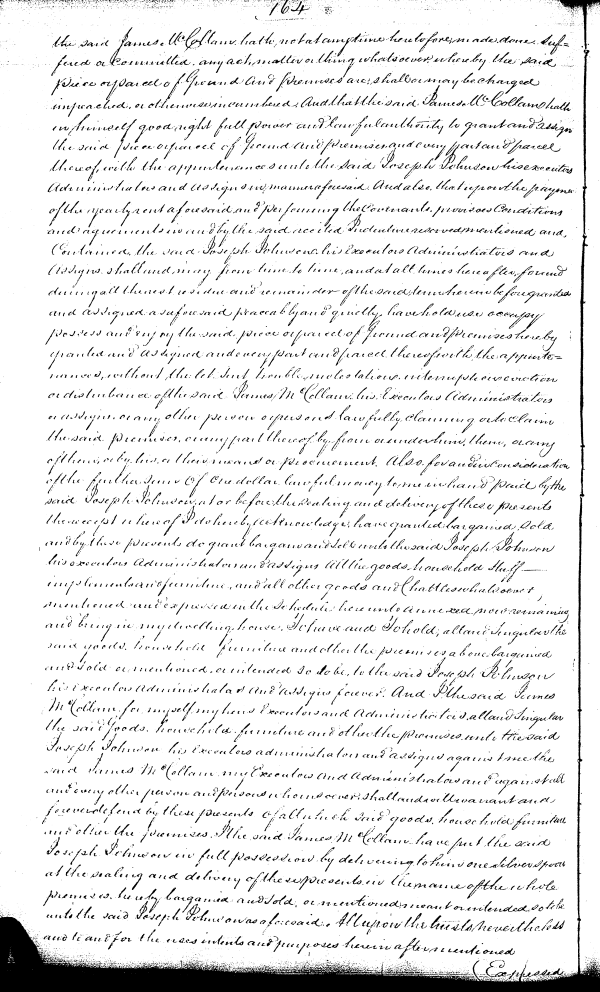 164
the said James McCollam hath, not at any time heretofore, made, done suf=
fered or committed, any act, matter or thing whatsoever whereby the said
piece or parcel of Ground and premises are, shall or may be charged
impeached, or otherwise incumbered, And that the said James McCollam hath
in himself good, right full power and lawful authority to grant and assign
the said piece or parcel of Ground And premises and every part and parcel
thereof, with the appurtenances unto the said Joseph Johnson his executors
Administrators and Assigns in manner aforesaid. And also, that upon the payment
of the yearly rent aforesaid and performing the Covenants, provisoes Conditions
and agreements in and by the said recited Indenture reserved mentioned and,
Contained, the said Joseph Johnson, his Executors Administrators and
Assigns, shall and may from time to time, and at all times hereafter, for and
during all the rest residue and remainder of the said, term herein before granted
and assigned as aforesaid peaceably and quietly, have hold use occupy
possess and enjoy the said piece or parcel of Ground and premises hereby
granted and assigned and every part and parcel thereof with, the appurte=
nances, without the let, suit, trouble, molestation, interruption eviction
or disturbance of the said, James McCollam, his, Executors Administrators
or assigns, or any other person or persons lawfully claiming or to claim
the said premises, or any part thereof by, from or under him, them, or any
of them, or by his, or their means or procurement. Also, for and in Consideration
of the further sum of One dollar lawful money to me in hand paid by the
said Joseph Johnson, at or before the sealing and delivery of these presents
the receipt whereof I do hereby acknowledge, have granted, bargained, sold
and by these presents do grant bargain and sell unto the said Joseph Johnson
his executors administrators and assigns All the goods, household Stuff
implements and furniture, and all other goods and Chattles whatsoever,
mentioned and expressed in the Schedule hereunto Annexed now remaining
and being in my dwelling house. To have and To hold, all and Singular the
said goods, household furniture and other the premises above bargained
and Sold or mentioned, or intended so to be, to the said Joseph Johnson
his executors Administrators And assigns forever. And I the said James
McCollam, for myself my heirs Executors and Administrators, all and Singular
the said Goods, household, furniture and other the premises, unto the said
Joseph Johnson his executors administrators and assigns against me the
said James McCollam my Executors And Administrators and against all
and every other person and persons whomsoever, shall and will warrant and
forever defend by these presents of all which said, goods, household furniture
and other the premises, I the said James McCollam, have put the said
Joseph Johnson in full possession by delivering to him one silver spoon
at the sealing and delivery of these presents, in the name of the whole
premises, hereby bargained and sold, or mentioned, meant or intended so to be
unto the said Joseph Johnson as aforesaid. All upon the trusts, nevertheless
and to and for the uses intents and purposes herein after mentioned
(Expressed